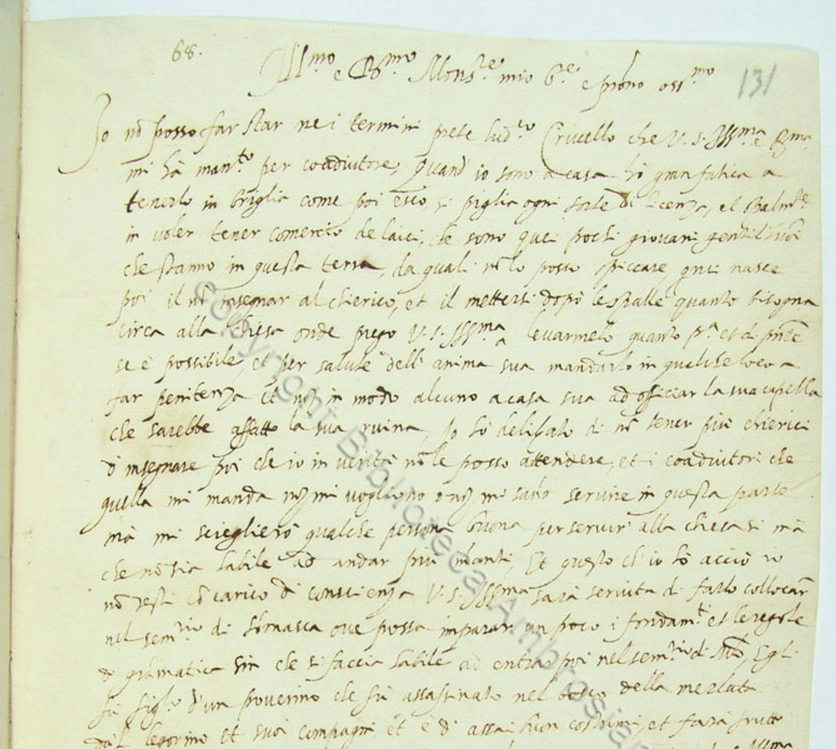 68.
Ill.mo e R.mo Mons.re mio S.re e p̃rono oss.mo 131
Io nõ posso far star ne i termini prete Lud.co Crucello che V. S. Ill.ma e R.ma
mi hà man.to per coadiutore, quand io sono a casa hò gran fatica a
tenerlo in briglia come poi esco si piglia ogni sorte di licenza, et
in voler tener comercio de laici, che sono quei pochi giovani
che stanno in questa terra, da quali nõ lo posso spiccare nasce
poi il nõ insegnar al chierico, et il mettersi dopò le spalle quanto bisogna
circa alla chiesa onde prego V. S. Ill.ma a levarmelo quanto
se è possibile, et per salute dell' anima sua mandarlo in qualche loco a
far penitenza et nõ in modo alcuno a casa sua ad officiar la sua capella
che sarebbe affatto la sua ruina, Io hò delib.ato di nõ tener più chierici
d' insegnare poi che io in verità nõ le posso attendere, et i coadiutori che
quella mi manda nõ mi vogliono o nõ mi sanõ servire in questa parte
mà mi sciegliero qualche persona buona per servir alla chiesa
che nõ sia habile ad andar più inanti, Et questo ch' io hò acciò
nõ resti cõ carico di conscienza V. S. Ill.ma sarà servita di farlo collocar
nel sem.rio di ove possa imparar un poco i fondam.ti et le regole
di gramatica sin che si faccia habile ad entrar poi nel sem.rio di Egli
fu figl.o d'un poverino che fù assassinato nel bosco della merlata
dal legorino et suoi compagni et è di assai bon costumi, et farà frutto